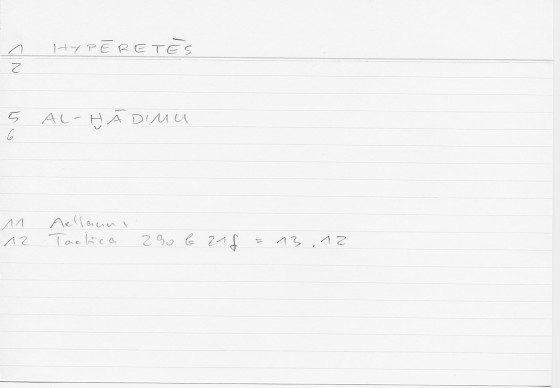 1 HYPĒRETĒS
2
5 AL-ḪĀDIMU
6
11 Aelianus
12 Tactica 290 b 21f = 13.12